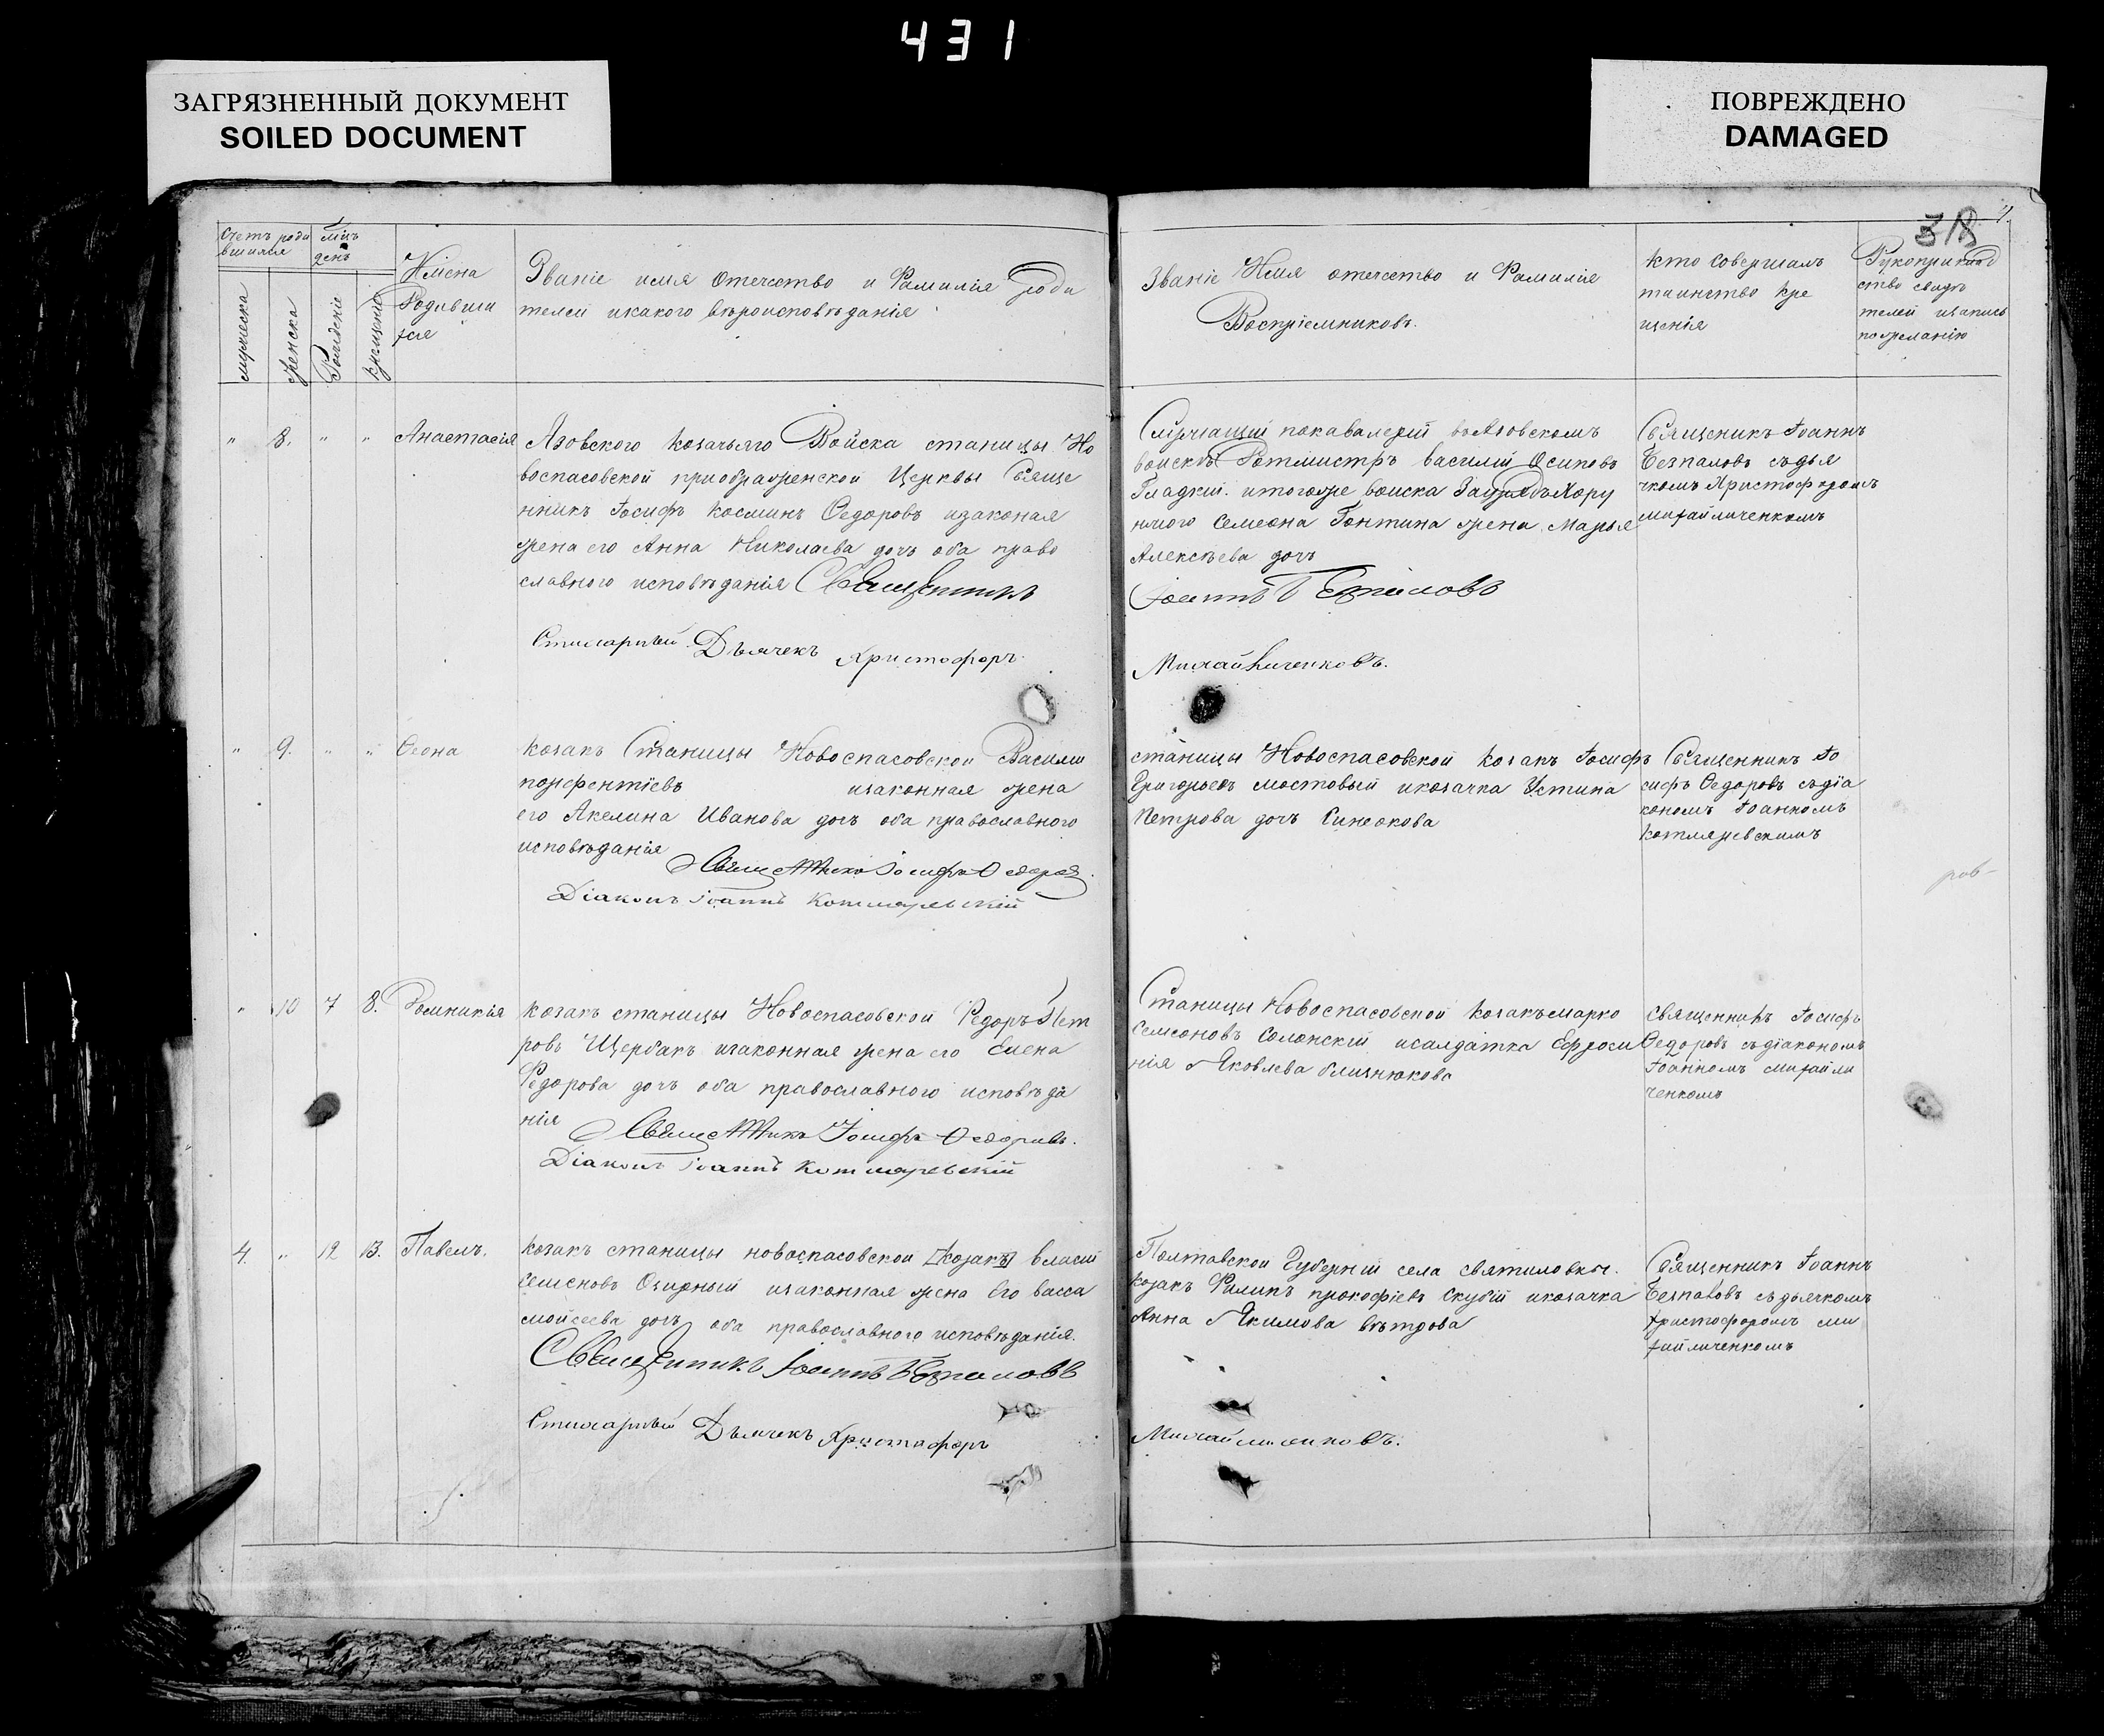 431
ЗАГРЯЗНЕННЫЙ ДОКУМЕНТ
SOILED DOCUMENT
ПОВРЕЖДЕНО
DAMAGED
318
Счетъ роди
вшихся
мѣсъ
день
мужеска
женска
Рожденіе
крещеніе
Имена
Родивши
хся
Званіе имя отечество и Фамилія роди
телей икакого вѣроисповѣданія
Званіе Имя отечество и Фамилія
Воспріемниковъ.
кто совершалъ
таинство кре
щенія
Рукоприклад
ство свидѣ
телей изапись
пожеланію
" 8. " " Анастасія
Азовского козачьяго Войска станицы Но
воспасовской приображенской Церквы Свяще
нникъ Іосифъ Косминъ Ѳедоровъ изаконая
жена его Анна Николаева дочъ оба право
славного исповѣданія Священникъ
Стихарный Дьячекъ Христофоръ
Служащій покавалерій въАзовскомъ
войскѣ Ротмистръ василій Осиповъ
Гладкій. итогоже воиска Зауряд Хору
нжого Семеона Гонтина жена Марья
Алексѣева дочъ
Іоаннъ Безпаловъ
Михайличенковъ.
Священикъ Іоаннъ
Безпаловъ съдья
чкомъ Христофоромъ
михайличенкомъ
" 9. " " Ѳеона
козакъ Станицы Новоспасовской Василій
порфентіевъ изаконная жена
его Акелина Иванова дочъ оба православного
исповѣданія
Священникъ Іосифъ Ѳедоровъ.
Діаконъ Іоаннъ Котляревскій
станицы Новоспасовской козакъ Іосифъ
Григорьевъ мостовый икозачка Устина
Петрова дочъ Синеокова
Священникъ Іо
сифъ Ѳедоровъ съдіа
кономъ Іоанномъ
котляревскимъ
ров-
" 10 7 8. Домникія
козакъ станицы Новоспасовской Федоръ Пет
ровъ Щербакъ изаконная жена его Елена
Федорова дочъ оба православного исповѣда
нія
Священникъ Іосифъ Ѳедоровъ.
Діаконъ Іоаннъ Котляревскій
Станицы Новоспасовской козакъмарко
Семеоновъ Солонскій исалдатка Ефроси
нія Яковлева близнюкова
священникъ Іосифъ
Ѳедоровъ съдіакономъ
Іоанномъ михайли
ченкомъ
4. " 12 13. Павелъ.
козакъ станицы новоспасовской [козакъ] власій
семеновъ Озирный изаконная жена его васса
мойсеева дочъ оба православного исповѣданія.
Священникъ Іоаннъ Безпаловъ
Стихарный Дьячекъ Христофоръ
Полтавской Губерніи села святиловки.
козакъ Филипъ прокофіевъ Скубій икозачка
Анна Якимова вѣтрова
Михайличенковъ.
Священникъ Іоаннъ
Безпаловъ съдьячкомъ
христофоромъ ми
хайличенкомъ